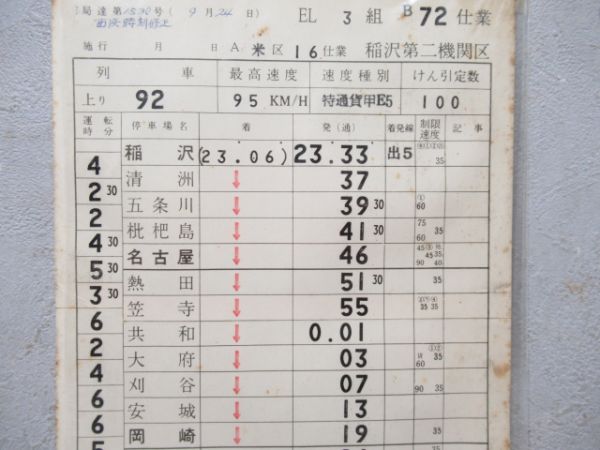 局達第1530号 ( 9 月 24 日) EL 3 組 B 72 仕業
施行 月 日 A 米区 16 仕業 稲沢第二機関区
列車 最高速度 速度種別 けん引定数
上り 92 95 KM/H 特通貨甲E5 100
運転時分 停車場名 着 発(通) 着発線 制限速度 記事
稲沢 (23.06) 23.33 出5 35
4
清洲 ↓ 37
2 30
五条川 ↓ 39 30 ① 60
2
枇杷島 ↓ 41 30 75 60 35
4 30
名古屋 ↓ 46 45 35 90 40
5 30
熱田 ↓ 51 30 35
3 30
笠寺 ↓ 55 35 35
6
共和 ↓ 0.01
2
大府 ↓ 03 ①② 60 35
4
刈谷 ↓ 07 90 35
6
安城 ↓ 13
6
岡崎 ↓ 19 35
5